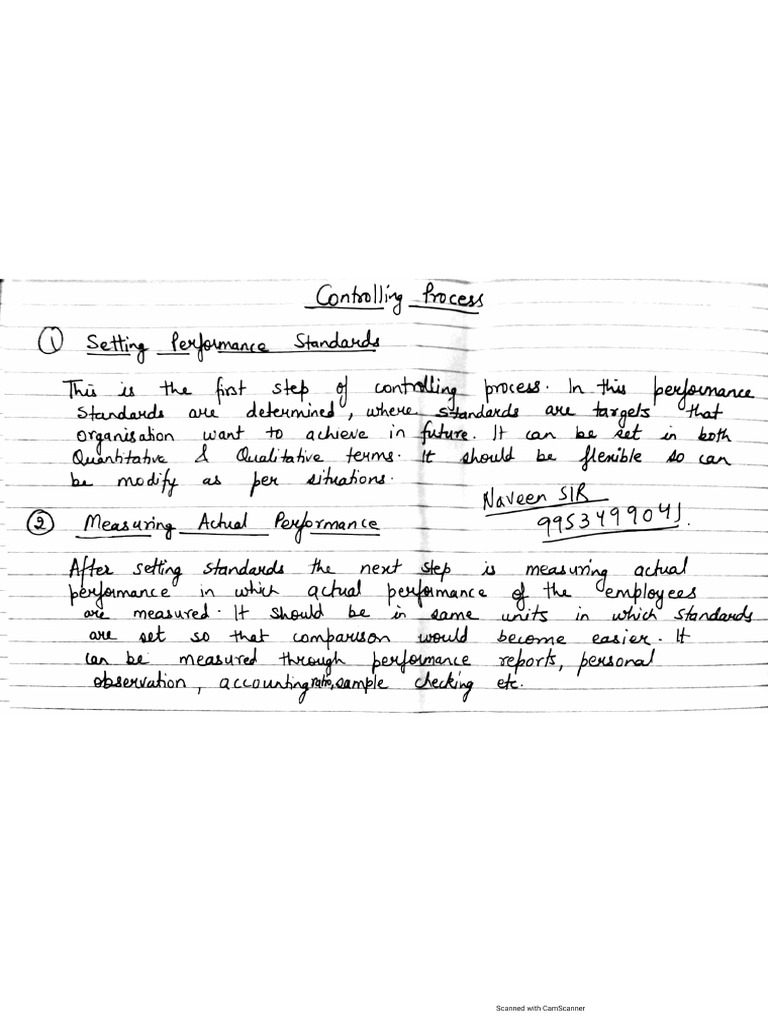 Controlling Process
① Setting Performance Standards
This is the first step of controlling process. In this performance
standards are determined, where standards are targets that
organisation want to achieve in future. It can be set in both
Quantitative & Qualitative terms. It should be flexible so can
be modify as per situations.
Naveen SIR
9953499041.
② Measuring Actual Performance
After setting standards the next step is measuring actual
performance in which actual performance of the employees
are measured. It should be in same units in which standards
are set so that comparison would become easier. It
can be measured through performance reports, personal
observation, accounting ratio, sample checking etc.
Scanned with CamScanner